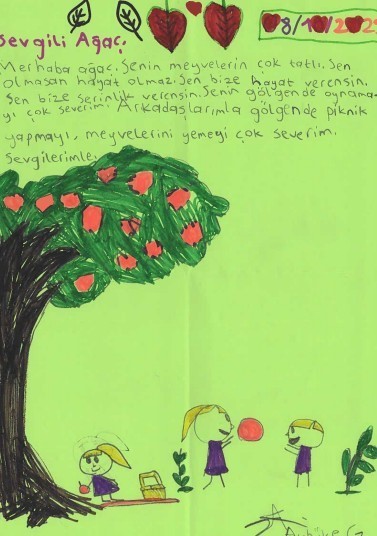 Sevgili Ağaç,
Merhaba ağaç. Senin meyvelerin çok tatlı. Sen
olmasan hayat olmaz. Sen bize hayat verensin.
Sen bize serinlik verensin. Senin gölgende oynama-
yı çok severim. Arkadaşlarımla gölgende piknik
yapmayı, meyvelerini yemeyi çok severim.
Sevgilerimle